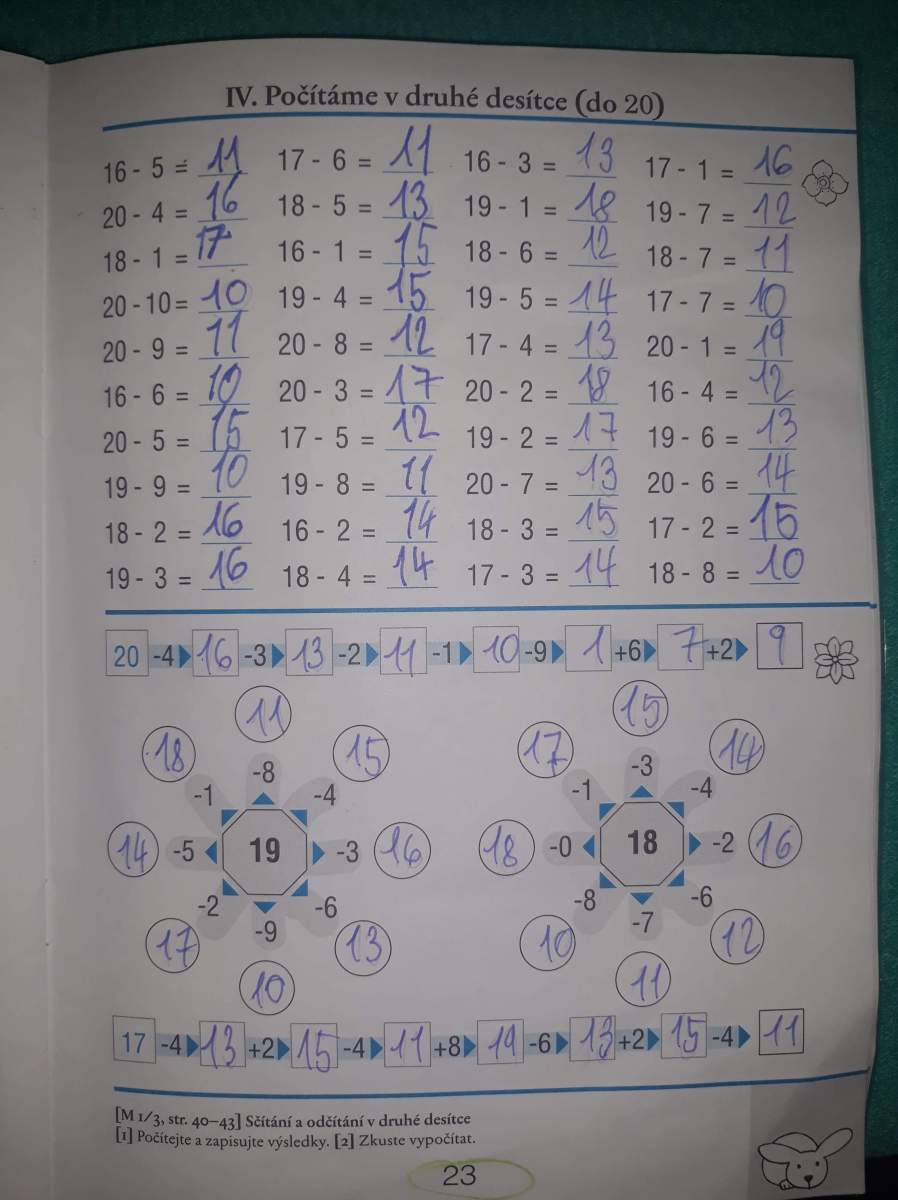 IV. Počítáme v druhé desítce (do 20)
16 - 5 = 11 17 - 6 = 11 16 - 3 = 13 17 - 1 = 16
20 - 4 = 16 18 - 5 = 13 19 - 1 = 18 19 - 7 = 12
18 - 1 = 17 16 - 1 = 15 18 - 6 = 12 18 - 7 = 11
20 - 10 = 10 19 - 4 = 15 19 - 5 = 14 17 - 7 = 10
20 - 9 = 11 20 - 8 = 12 17 - 4 = 13 20 - 1 = 19
16 - 6 = 10 20 - 3 = 17 20 - 2 = 18 16 - 4 = 12
20 - 5 = 15 17 - 5 = 12 19 - 2 = 17 19 - 6 = 13
19 - 9 = 10 19 - 8 = 11 20 - 7 = 13 20 - 6 = 14
18 - 2 = 16 16 - 2 = 14 18 - 3 = 15 17 - 2 = 15
19 - 3 = 16 18 - 4 = 14 17 - 3 = 14 18 - 8 = 10
20 -4 16 -3 13 -2 11 -1 10 -9 1 +6 7 +2 9
11 15
18 15 17 14
-8 -3
-1 -4 -1 -4
14 -5 19 -3 16 18 -0 18 -2 16
-2 -6 -8 -6
-9 -7
17 13 10 12
10 11
17 -4 13 +2 15 -4 11 +8 19 -6 13 +2 15 -4 11
[M 1/3, str. 40–43] Sčítání a odčítání v druhé desítce
[1] Počítejte a zapisujte výsledky. [2] Zkuste vypočítat.
23